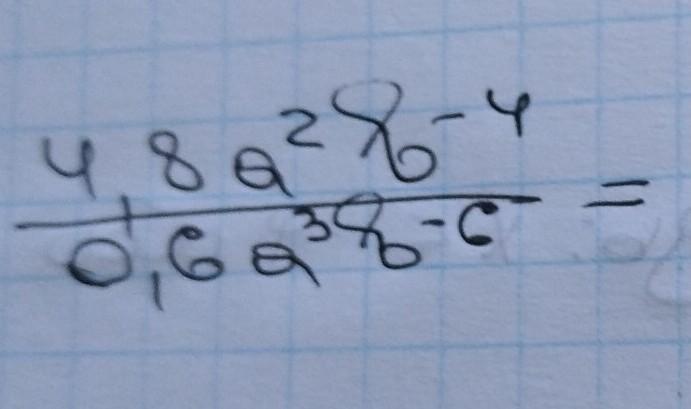 4,8a²b⁻⁴
0,6a³b⁻⁶ =